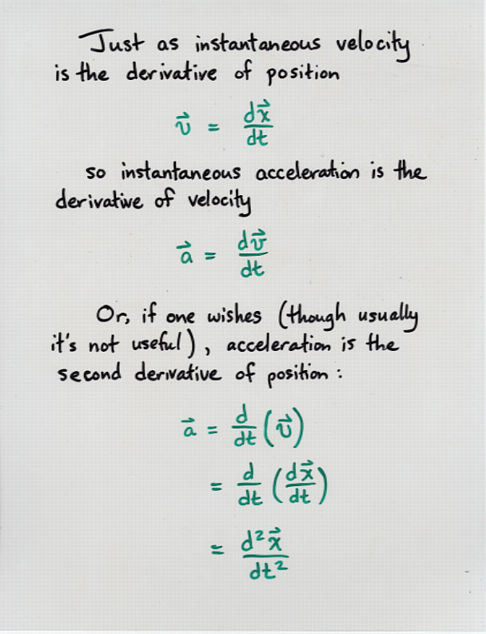 Just as instantaneous velocity
is the derivative of position
v⃗ = dx⃗/dt
so instantaneous acceleration is the
derivative of velocity
a⃗ = dv⃗/dt
Or, if one wishes (though usually
it's not useful), acceleration is the
second derivative of position:
a⃗ = d/dt (v⃗)
= d/dt (dx⃗/dt)
= d²x⃗/dt²